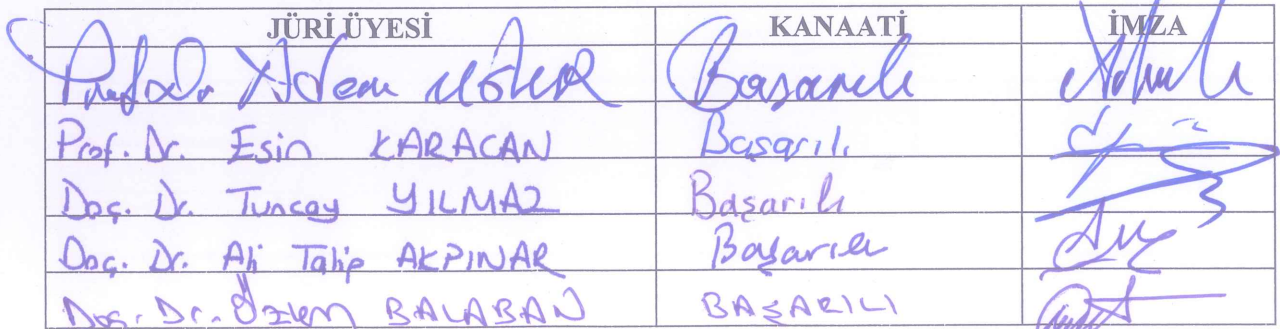 JÜRİ ÜYESİ KANAATİ İMZA
Prof. Dr. Adem UĞUR Başarılı
Prof. Dr. Esin KARACAN Başarılı
Doç. Dr. Tuncay YILMAZ Başarılı
Doç. Dr. Ali Talip AKPINAR Başarılı
Doç. Dr. Özlem BALABAN BAŞARILI